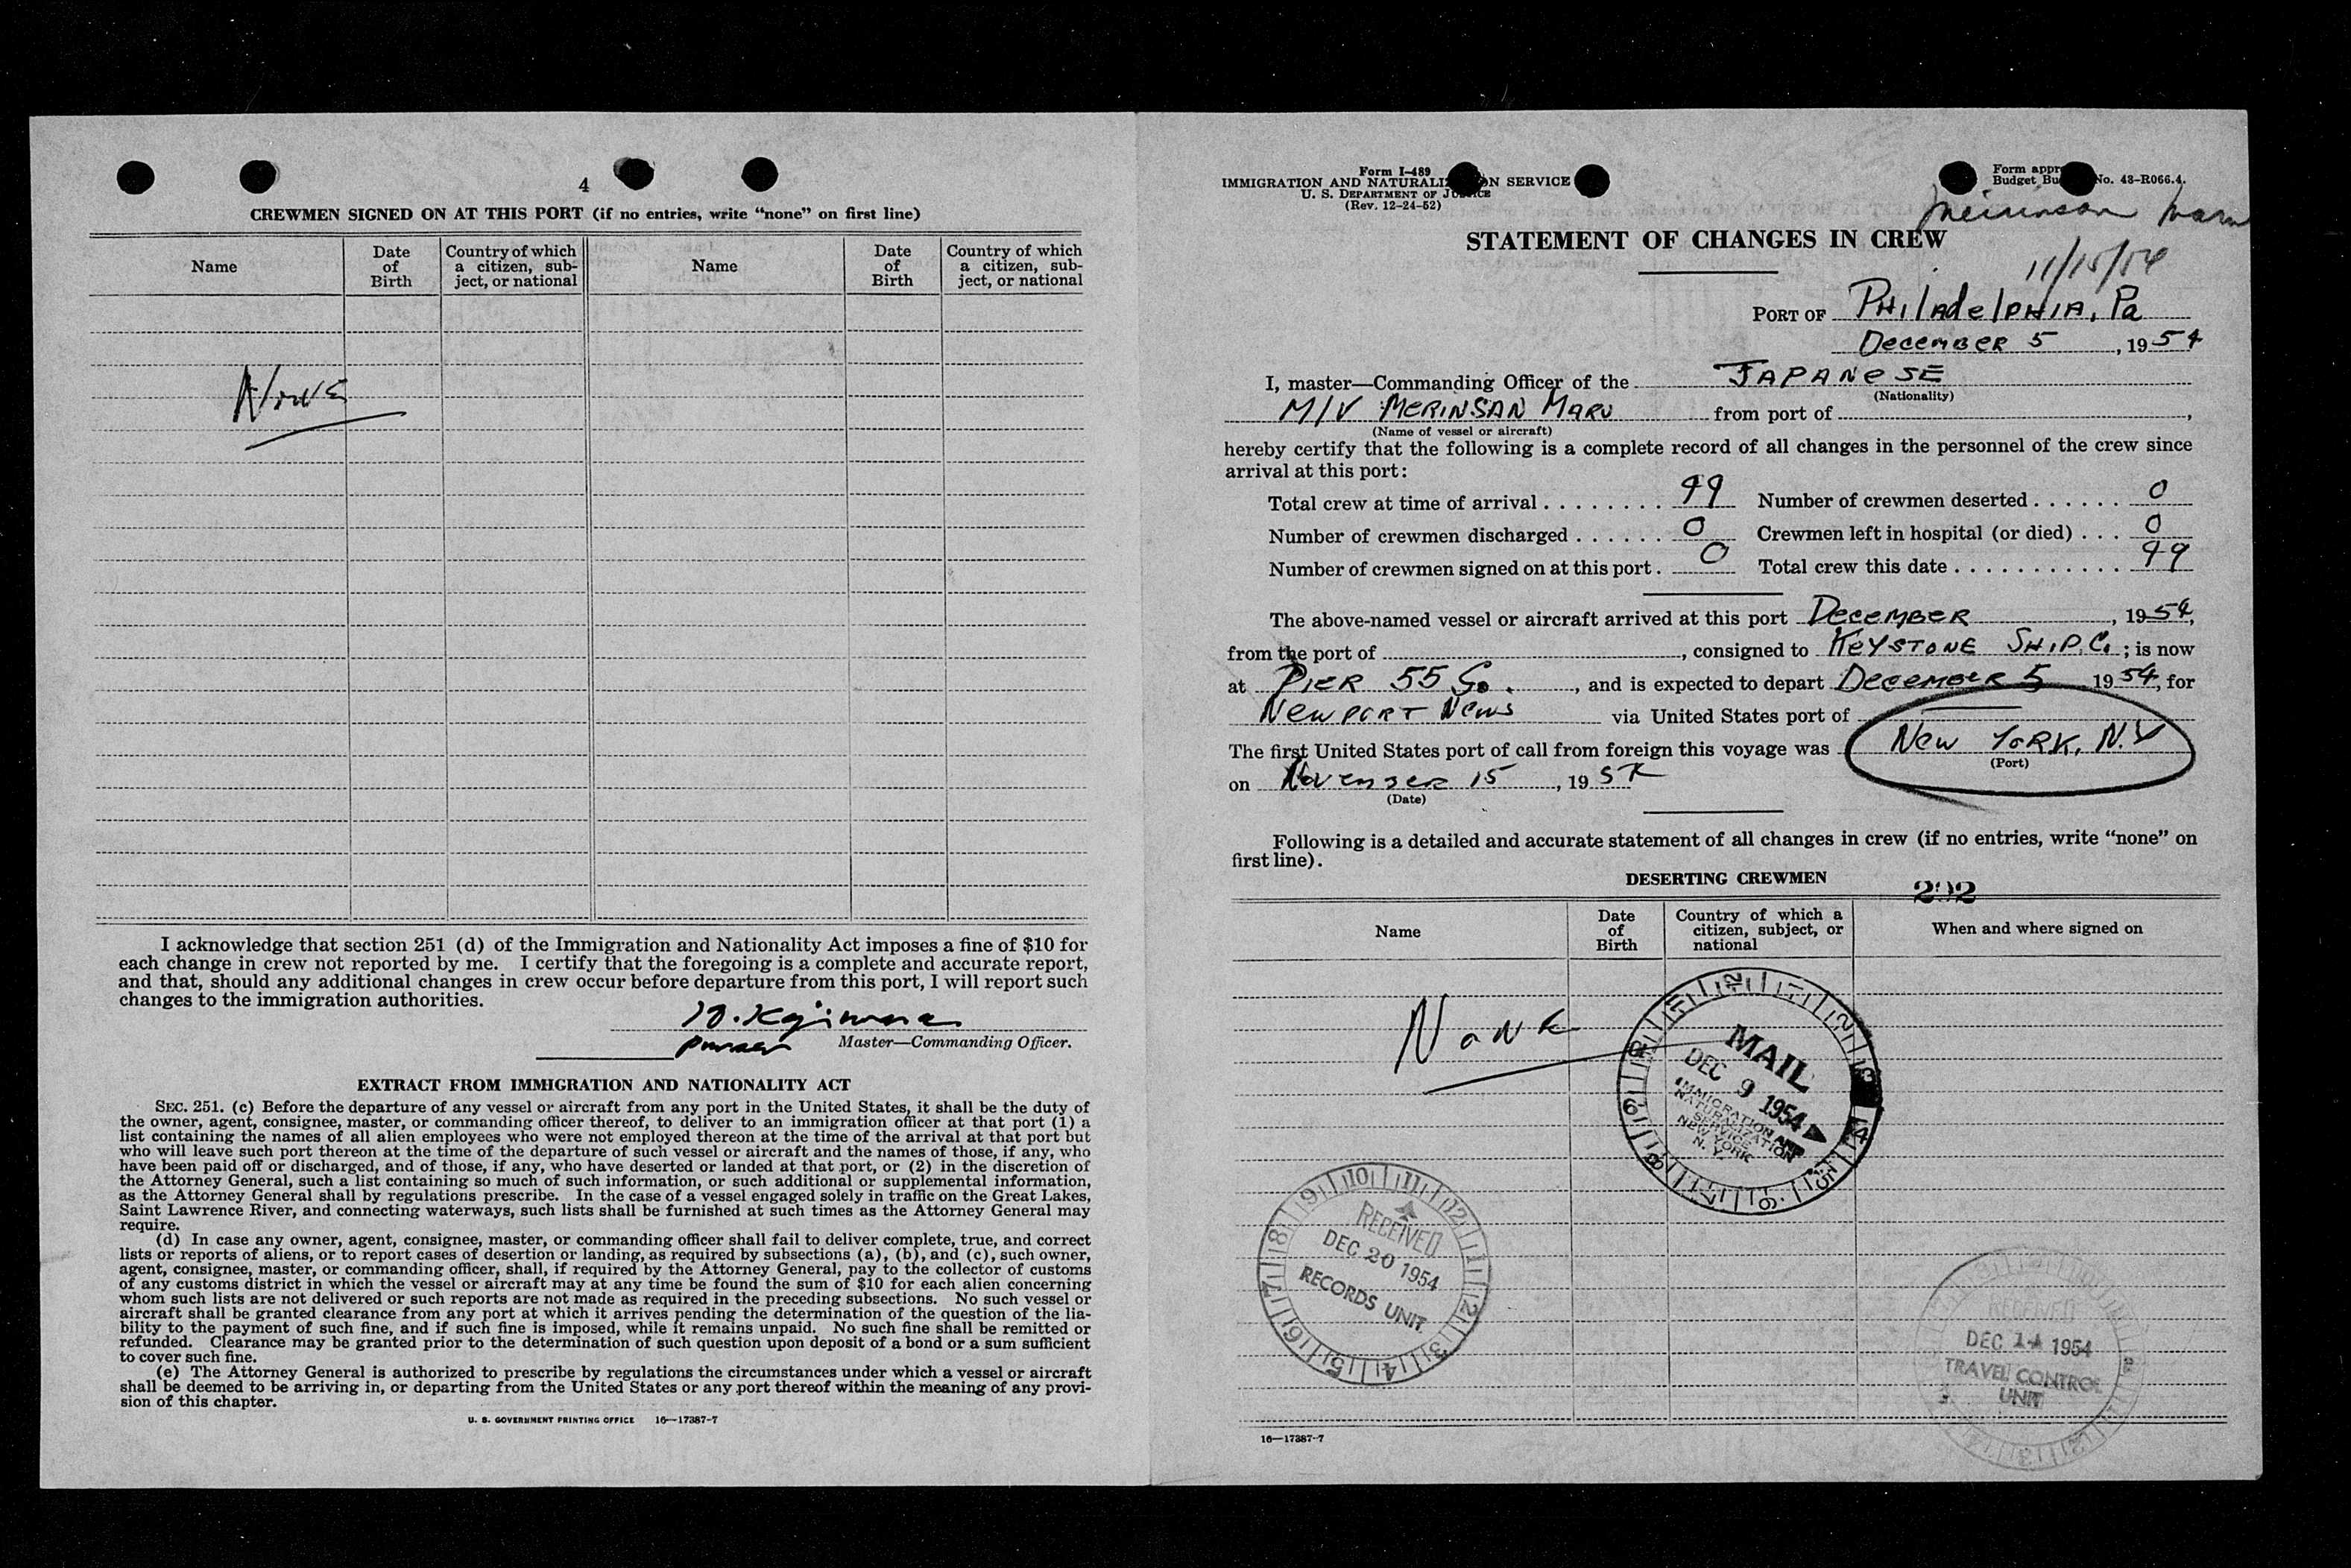 4
CREWMEN SIGNED ON AT THIS PORT (if no entries, write “none” on first line)
Name
Date of Birth
Country of which a citizen, subject, or national
Name
Date of Birth
Country of which a citizen, sub-ject, or national
None
I acknowledge that section 251 (d) of the Immigration and Nationality Act imposes a fine of $10 for
each change in crew not reported by me. I certify that the foregoing is a complete and accurate report,
and that, should any additional changes in crew occur before departure from this port, I will report such
changes to the immigration authorities.
Kajiwara
Purser Master—Commanding Officer.
EXTRACT FROM IMMIGRATION AND NATIONALITY ACT
SEC. 251. (c) Before the departure of any vessel or aircraft from any port in the United States, it shall be the duty of
the owner, agent, consignee, master, or commanding officer thereof, to deliver to an immigration officer at that port (1) a
list containing the names of all alien employees who were not employed thereon at the time of the arrival at that port but
who will leave such port thereon at the time of the departure of such vessel or aircraft and the names of those, if any, who
have been paid off or discharged, and of those, if any, who have deserted or landed at that port, or (2) in the discretion of
the Attorney General, such a list containing so much of such information, or such additional or supplemental information,
as the Attorney General shall by regulations prescribe. In the case of a vessel engaged solely in traffic on the Great Lakes,
Saint Lawrence River, and connecting waterways, such lists shall be furnished at such times as the Attorney General may
require.
(d) In case any owner, agent, consignee, master, or commanding officer shall fail to deliver complete, true, and correct
lists or reports of aliens, or to report cases of desertion or landing, as required by subsections (a), (b), and (c), such owner,
agent, consignee, master, or commanding officer, shall, if required by the Attorney General, pay to the collector of customs
of any customs district in which the vessel or aircraft may at any time be found the sum of $10 for each alien concerning
whom such lists are not delivered or such reports are not made as required in the preceding subsections. No such vessel or
aircraft shall be granted clearance from any port at which it arrives pending the determination of the question of the lia-
bility to the payment of such fine, and if such fine is imposed, while it remains unpaid. No such fine shall be remitted or
refunded. Clearance may be granted prior to the determination of such question upon deposit of a bond or a sum sufficient
to cover such fine.
(e) The Attorney General is authorized to prescribe by regulations the circumstances under which a vessel or aircraft
shall be deemed to be arriving in, or departing from the United States or any port thereof within the meaning of any provi-
sion of this chapter.
U. S. GOVERNMENT PRINTING OFFICE 16—17387-7
Form I-489
IMMIGRATION AND NATURALIZATION SERVICE
U. S. DEPARTMENT OF JUSTICE
(Rev. 12-24-52)
Form appr
Budget Bu No. 43-R066.4.
Maru
11/15/54
STATEMENT OF CHANGES IN CREW
PORT OF Philadelphia, Pa
December 5, 1954
I, master—Commanding Officer of the JAPANeSE
(Nationality)
M/V MERINSAN MARU from port of ,
(Name of vessel or aircraft)
hereby certify that the following is a complete record of all changes in the personnel of the crew since
arrival at this port:
Total crew at time of arrival 49 Number of crewmen deserted 0
Number of crewmen discharged 0 Crewmen left in hospital (or died) 0
Number of crewmen signed on at this port 0 Total crew this date 49
The above-named vessel or aircraft arrived at this port December , 1954,
from the port of , consigned to Keystone Ship. Co. ; is now
at Pier 55 So. , and is expected to depart December 5 1954, for
Newport News via United States port of
The first United States port of call from foreign this voyage was New York, N.Y
(Port)
on November 15 , 1954
(Date)
Following is a detailed and accurate statement of all changes in crew (if no entries, write “none” on
first line).
DESERTING CREWMEN
292
Name
Date of Birth
Country of which a citizen, subject, or national
When and where signed on
None
MAIL
DEC 9 1954
IMMIGRATION AND
NATURALIZATION
SERVICE
NEW YORK
N. Y.
RECEIVED
DEC 20 1954
RECORDS UNIT
RECEIVED
DEC 14 1954
TRAVEL CONTROL
UNIT
16—17387-7